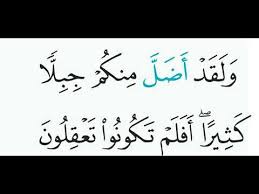 وَلَقَدۡ أَضَلَّ مِنكُمۡ جِبِلّٗا
كَثِيرًاۖ أَفَلَمۡ تَكُونُواْ تَعۡقِلُونَ